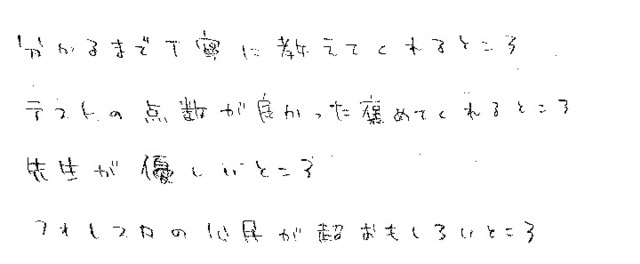 分かるまで丁寧に教えてくれるところ
テストの点数が良かった褒めてくれるところ
先生が優しいところ
の公民が超おもしろいところ